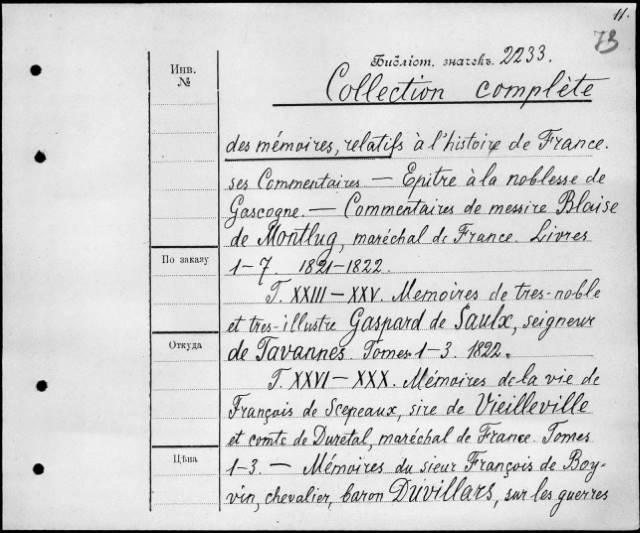 11.
73
Инв.
№
Библіот. значекъ. 2233.
Collection complète
des mémoires, relatifs à l'histoire de France.
ses Commentaires — Epitre à la noblesse de
Gascogne. — Commentaires de messire Blaise
de Montlug, maréchal de France. Livres
По заказу
1-7. 1821-1822.
T. XXIII-XXV. Memoires de tres-noble
et tres-illustre Gaspard de Saulx, seigneur
Откуда
de Tavannes. Tomes 1-3. 1822.
T. XXVI-XXX. Mémoires de la vie de
François de Scepeaux, sire de Vieilleville
et comte de Duretal, maréchal de France. Tomes
Цѣна
1-3. — Mémoires du sieur François de Boy-
vin, chevalier, baron Duvillars, sur les guerres